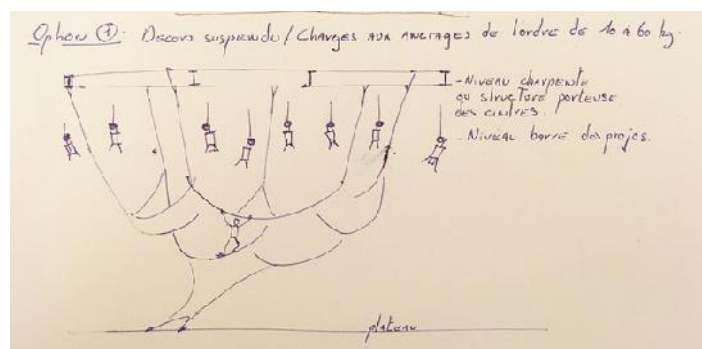 Option ① : Decors suspendu / Charges aux ancrages de l'ordre de 10 à 60 kg.
- Niveau charpente
ou structure porteuse
des cintres.
- Niveau barre des projos.
plateau